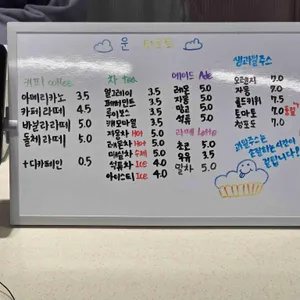 커피 coffee
아메리카노 3.5
카페라떼 4.5
바닐라라떼 5.0
돌체라떼 5.0
+디카페인 0.5
차 tea
얼그레이 3.5
페퍼민트 3.5
루이보스 3.5
캐모마일 3.5
자몽차 Hot 5.0
레몬차 Hot 5.0
매실차 수제 5.0
석류차 Ice 4.0
아이스티 Ice 4.0
에이드 Ade
레몬 5.0
자몽 5.0
망고 5.0
석류 5.0
라떼 latte
초코 5.0
우유 3.5
말차 5.0
생과일주스
오렌지 7.0
자몽 7.0
골드키위 7.5
토마토 7.0
청포도 7.0
과일주스는